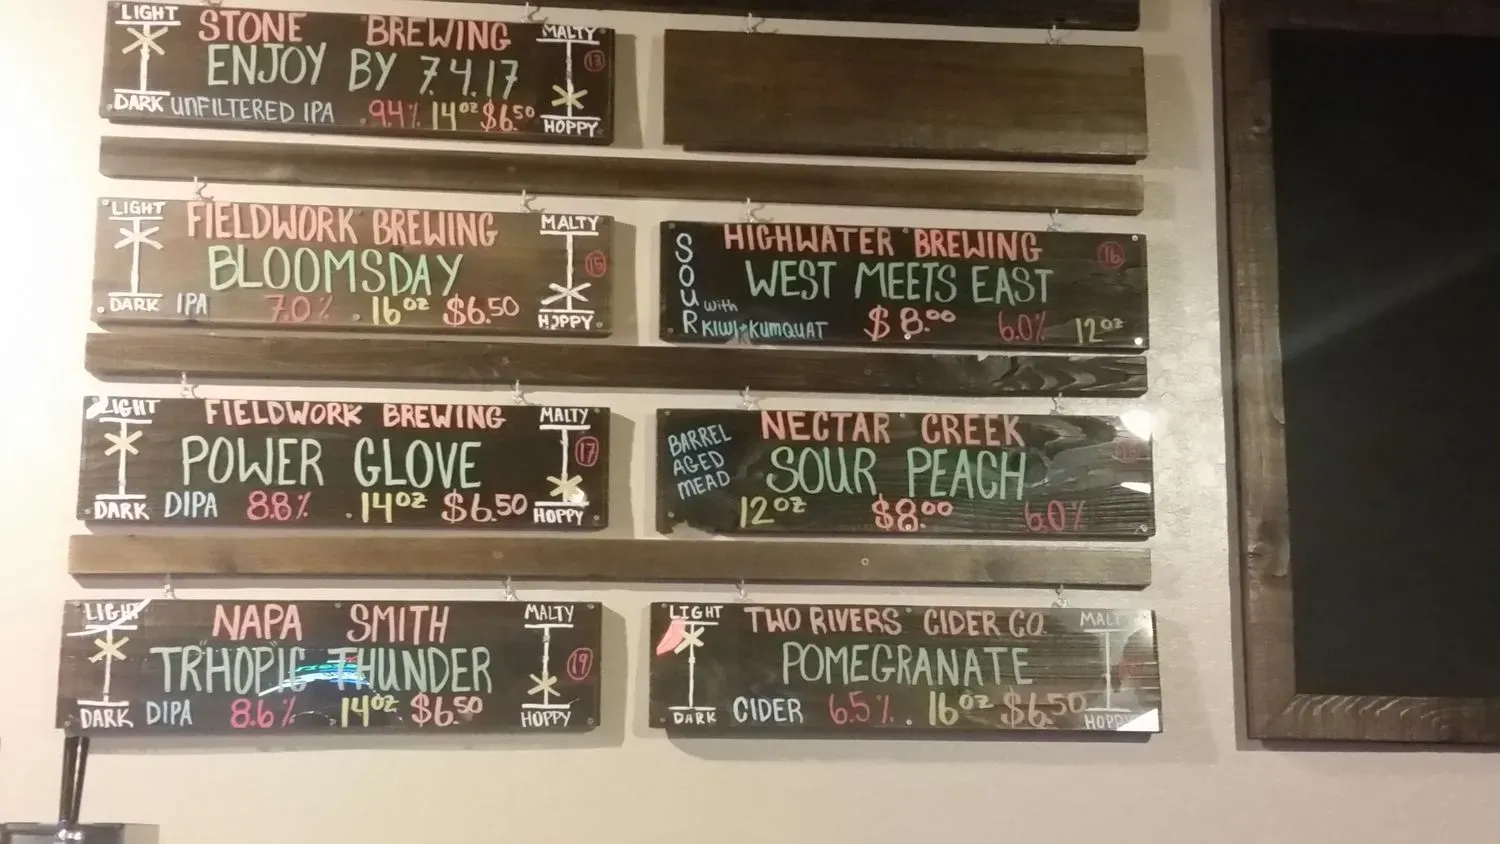 LIGHT STONE BREWING MALTY
ENJOY BY 7.4.17 13
DARK UNFILTERED IPA .9.4% 14oz $6.50 HOPPY
LIGHT FIELDWORK BREWING MALTY
BLOOMSDAY 15
DARK IPA 7.0% . 16oz $6.50 HOPPY
SOUR HIGHWATER BREWING 16
WEST MEETS EAST
with
KIWI+KUMQUAT $8.00 6.0% 12oz
LIGHT FIELDWORK BREWING MALTY
POWER GLOVE 17
DARK DIPA 8.8% . 14oz $6.50 HOPPY
BARREL NECTAR CREEK
AGED SOUR PEACH
MEAD 12oz $8.00 6.0%
LIGHT NAPA SMITH MALTY
"TRHOPIC" THUNDER 19
DARK DIPA 8.6% 14oz $6.50 HOPPY
LIGHT TWO RIVERS CIDER CO. MALTY
POMEGRANATE
DARK CIDER 6.5% . 16oz $6.50 HOPPY